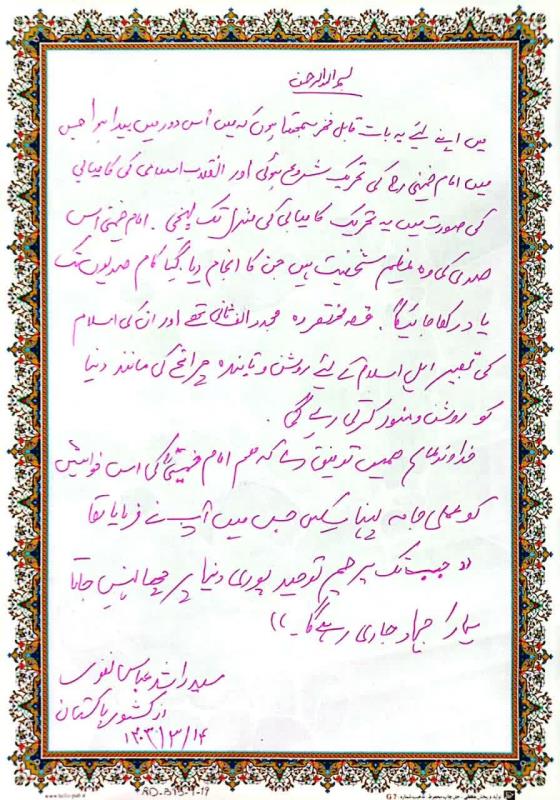 بسم اللہ الرحمن
میں اپنے لئے یہ بات قابل فخر سمجھتا ہوں کہ میں اُس دور میں پیدا ہوا جس
میں امام خمینی رح کی تحریک شروع ہوئی اور انقلاب اسلامی کی کامیابی
کی صورت میں یہ تحریک کامیابی کی منزل تک پہنچی۔ امام خمینی اس
صدی کی وہ عظیم شخصیت ہیں جن کا انجام دیا گیا کام صدیوں تک
یاد رکھا جائیگا۔ قصہ مختصر وہ مجدد الف ثانی تھے اور ان کی اسلام
کی تعبیر اہل اسلام کے لئے روشن و تابندہ چراغ کی مانند دنیا
کو روشن و منور کرتی رہے گی۔
خداوند ہمیں توفیق دے کہ ہم امام خمینی رح کی اس خواہش
کو عملی جامہ پہنا سکیں جس میں آپ نے فرمایا تھا
"جب تک پرچم توحید پوری دنیا پر چھا نہیں جاتا
ہمارا جہاد جاری رہے گا۔"
سید راشد عباس نقوی
از کشور پاکستان
۱۴۰۳/۳/۱۴
RO-B75-9-19
G 7